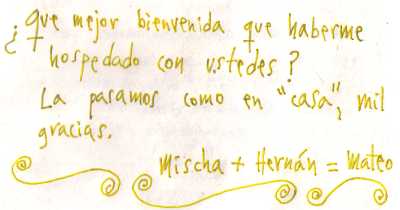 ¿Que mejor bienvenida que haberme
hospedado con ustedes?
La pasamos como en "casa", mil
gracias.
Mischa + Hernán = Mateo